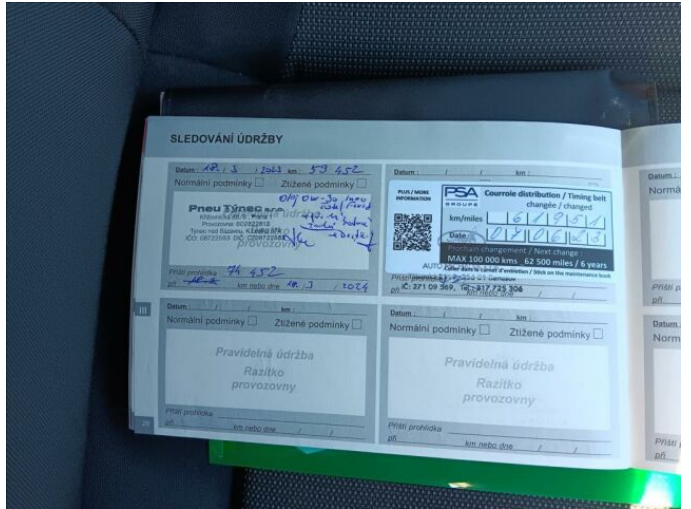 SLEDOVÁNÍ ÚDRŽBY
Datum: 18. / 3 / 2023 km: 59 452
Normální podmínky Ztížené podmínky
Olej 0W-30
Pneu Týnec s.r.o.
provozovny
Příští prohlídka 74 452
při km nebo dne 18. / 3 / 2024
Datum: / / km:
PLUS / MORE
INFORMATION
PSA
GROUPE
Courroie distribution / Timing belt
changée / changed
km/miles 61951
Date 070623
Prochain changement / Next change :
MAX 100 000 kms 62 500 miles / 6 years
Coller dans le carnet d'entretien / Stick on the maintenance book
IČ: 271 09 569, Tel.: 317 725 306
při km nebo dne
III
Datum: / / km:
Normální podmínky Ztížené podmínky
Pravidelná údržba
Razítko
provozovny
Příští prohlídka
při km nebo dne / /
Datum: / / km:
Normální podmínky Ztížené podmínky
Pravidelná údržba
Razítko
provozovny
Příští prohlídka
při km nebo dne / /
Datum:
Norm
Příští p
při
Datum:
Norm
Příští p
při